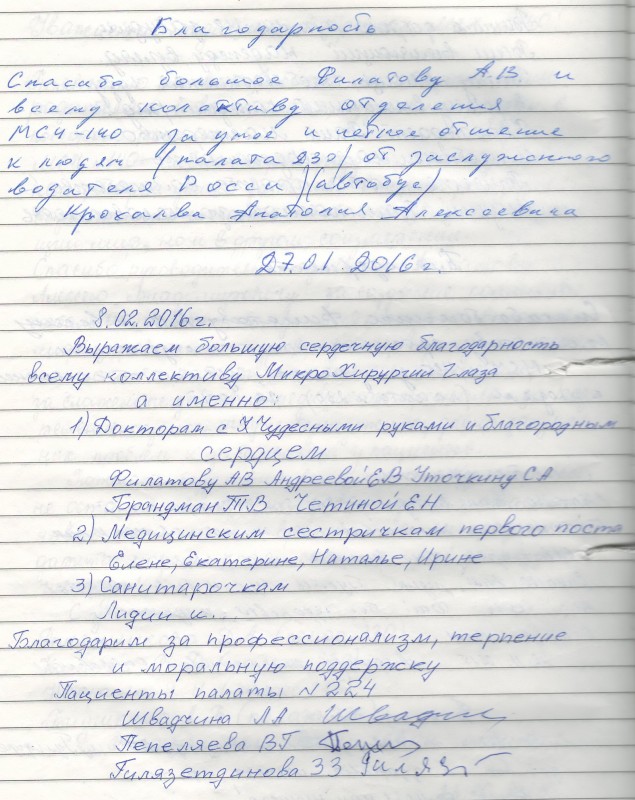 Благодарность
Спасибо большое Филатову А.В. и
всему колективу отделения
МСЧ-140 за умое и четкое отшение
к людям (палата 230) от заслужоного
водателя Росси) (автобус)
Крохалва Анатолия Алексеевича
27.01.2016г.
8.02.2016г.
Выражаем большую сердечную благодарность
всему коллективу МикроХирургии Глаза
а именно:
1) Докторам с Чудесными руками и благородным
сердцем
Филатову АВ Андреевой ЕВ Уточкину СА
Брандман ТВ Четиной ЕН
2) Медицинским сестричкам первого поста
Елене, Екатерине, Наталье, Ирине
3) Санитарочкам
Лидии и...
Благодарим за профессионализм, терпение
и моральную поддержку
Пациенты палаты №224
Швадчина ЛА
Пепеляева ВГ
Гилязетдинова ЗЗ